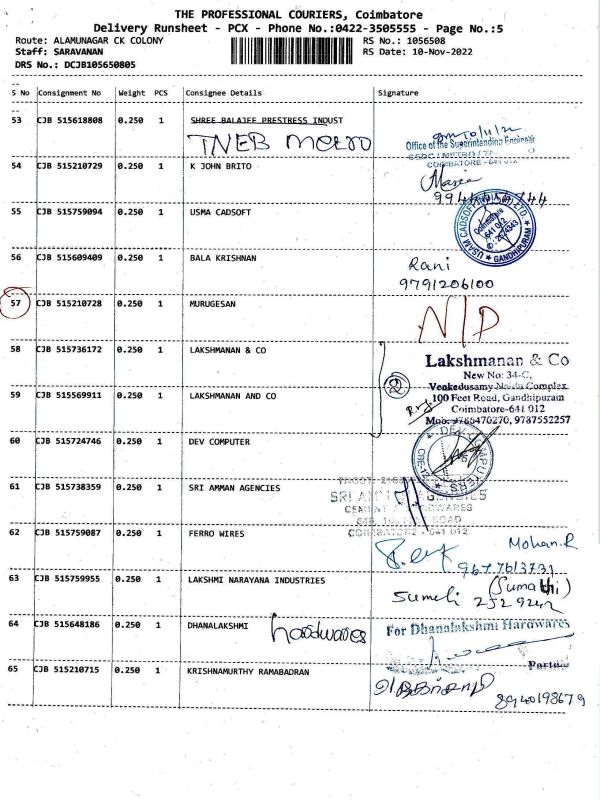 THE PROFESSIONAL COURIERS, Coimbatore
Delivery Runsheet - PCX - Phone No.:0422-3505555 - Page No.:5
Route: ALAMUNAGAR CK COLONY
RS No.: 1056508
Staff: SARAVANAN
RS Date: 10-Nov-2022
DRS No.: DCJB105650805
S No Consignment No Weight PCS Consignee Details Signature
53 CJB 515618808 0.250 1 SHREE BALAJEE PRESTRESS INDUST
TNEB METRO
Office of the Superintending Engineer
COIMBATORE - 641 012
54 CJB 515210729 0.250 1 K JOHN BRITO
Maria
55 CJB 515759094 0.250 1 USMA CADSOFT
Coimbatore
641 012
GANDHIPURAM
56 CJB 515609409 0.250 1 BALA KRISHNAN
Rani
9791206100
57 CJB 515210728 0.250 1 MURUGESAN
N/D
58 CJB 515736172 0.250 1 LAKSHMANAN & CO
Lakshmanan & Co
New No: 34-C,
Venkedusamy Naidu Complex
59 CJB 515569911 0.250 1 LAKSHMANAN AND CO
2
100 Feet Road, Gandhipuram
Coimbatore-641 012
Mob: 9786470270, 9787552257
60 CJB 515724746 0.250 1 DEV COMPUTER
DEV COMPUTERS
61 CJB 515738359 0.250 1 SRI AMMAN AGENCIES
SRI AMMAN AGENCIES
ROAD
COIMBATORE - 641 012
62 CJB 515759087 0.250 1 FERRO WIRES
Mohan.R
9677613731
63 CJB 515759955 0.250 1 LAKSHMI NARAYANA INDUSTRIES
(Sumathi)
64 CJB 515648186 0.250 1 DHANALAKSHMI
hardwares
For Dhanalakshmi Hardwares
Partner
65 CJB 515210715 0.250 1 KRISHNAMURTHY RAMABADRAN
8940198679